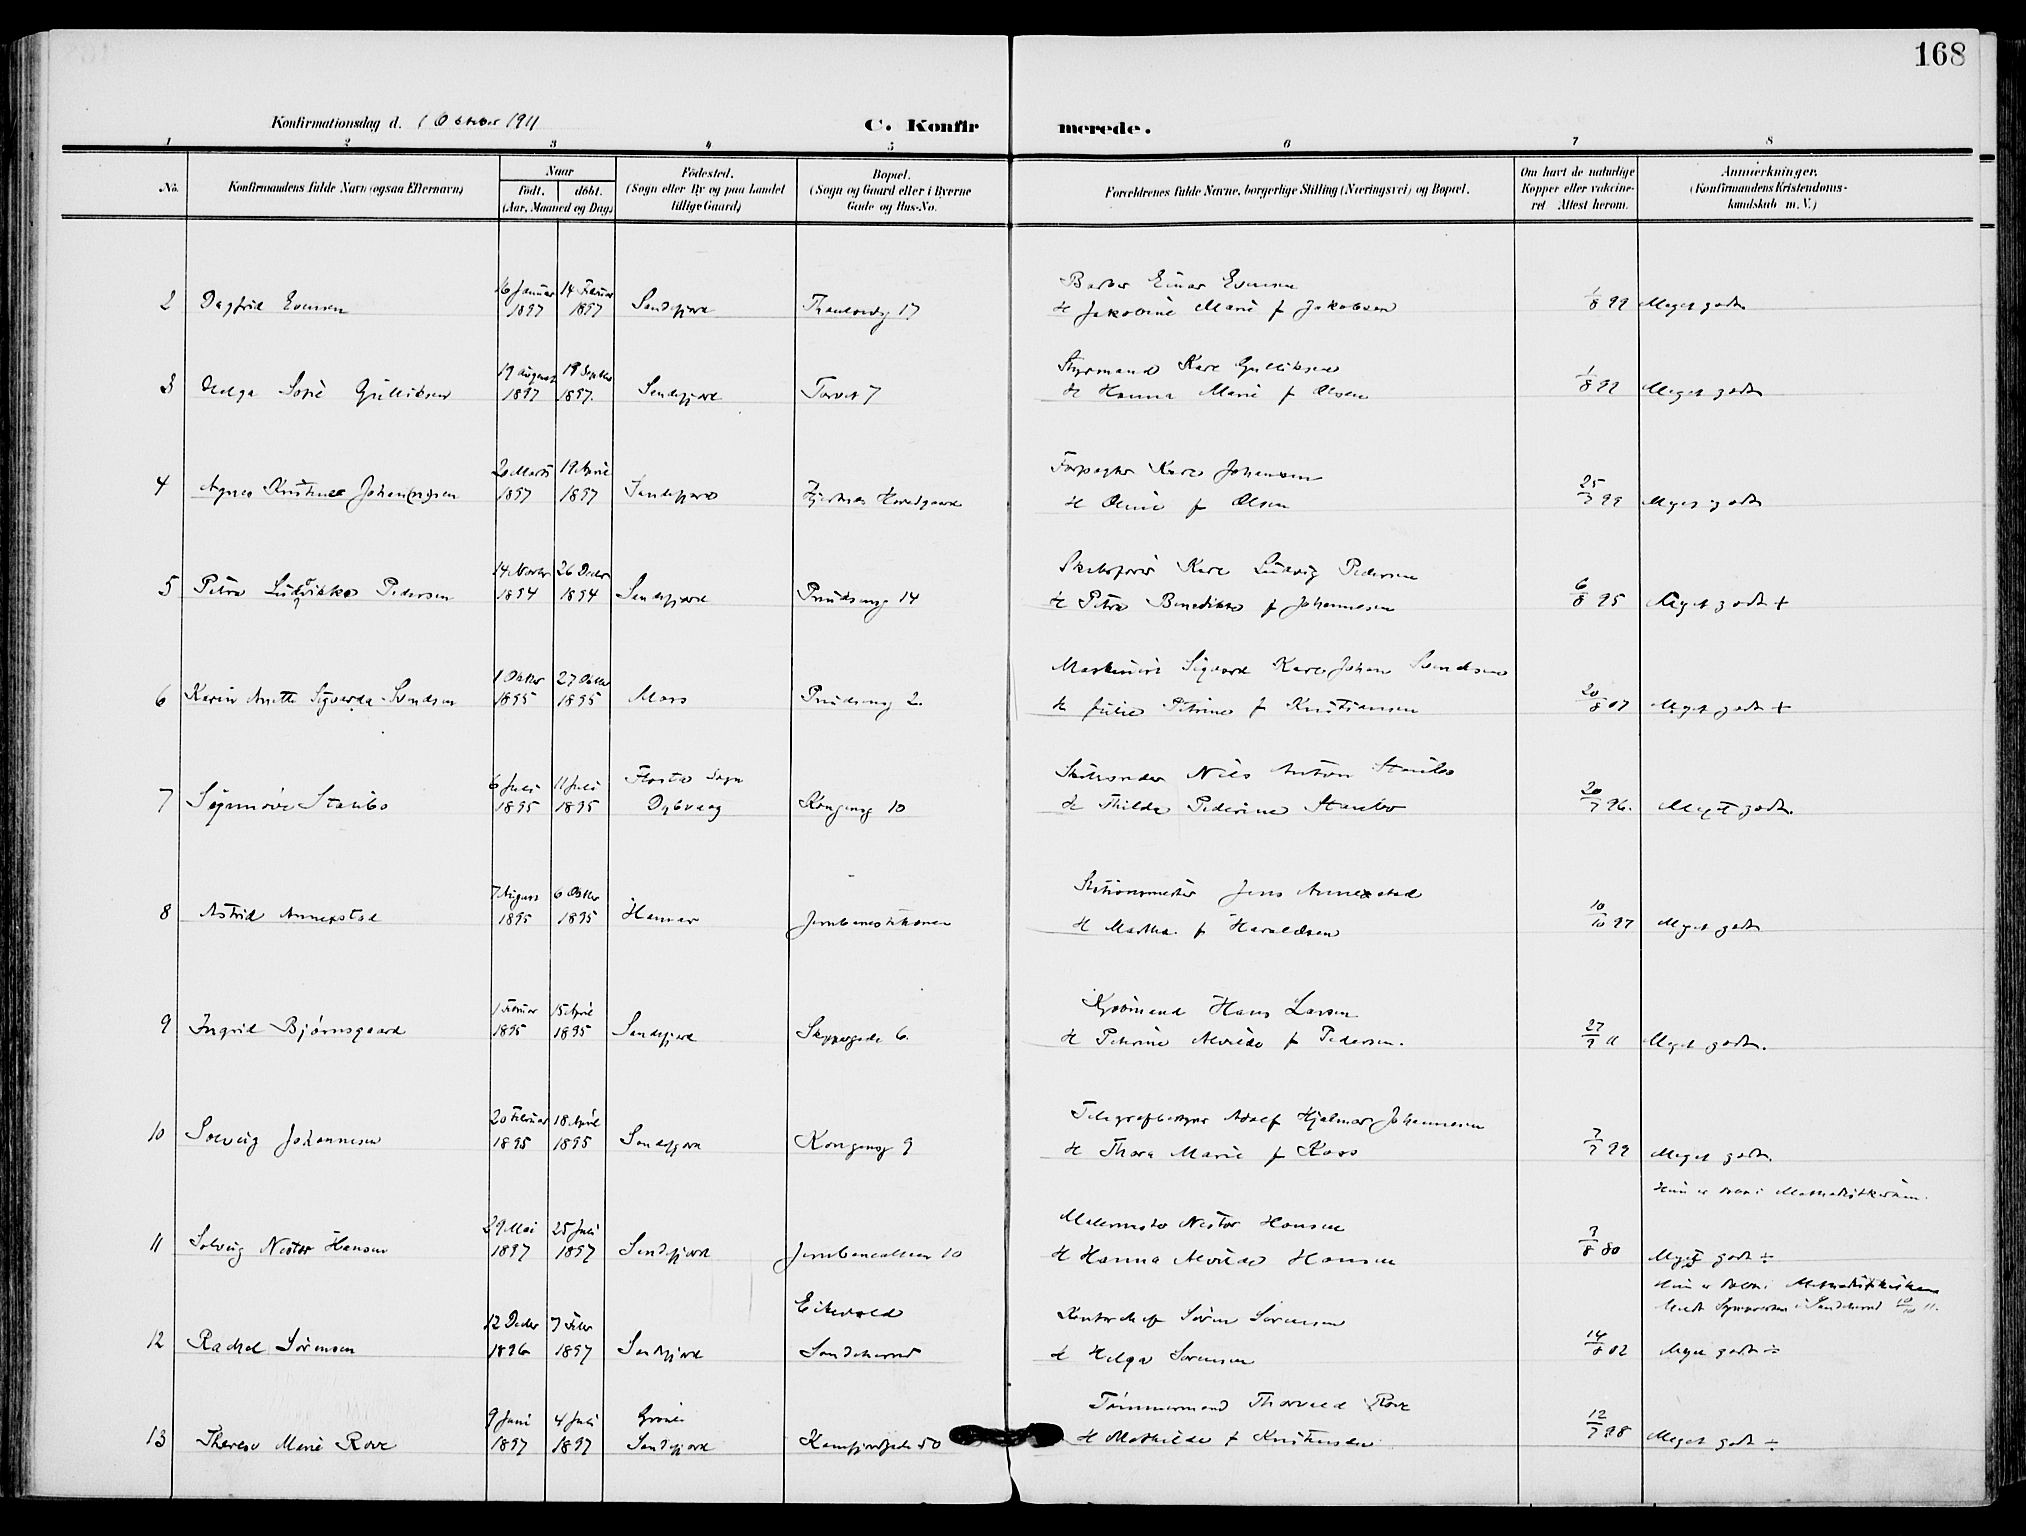 168
Konfirmationsdag d. 1 Oktober 1911
C. Konfirmerede.
1 2 3 4 5 6 7 8
No. Konfirmandens fulde Navn (ogsaa Efternavn) Naar født. døbt. (Aar, Maaned og Dag) Fødested. (Sogn eller By og paa Landet tillige Gaard) Bopæl. (Sogn og Gaard eller i Byerne Gade og Hus-No. Forældrenes fulde Navne, borgerlige Stilling (Næringsvei) og Bopæl. Om havt de naturlige Kopper eller vaccineret. Attest herom. Anmerkninger. (Konfirmandens Kristendomskundskab m. V.)
16 Januar 14 Februar Barber Einar Evensen
2 Dagfrid Evensen 1897 1897 Sandefjord 17 H Jakobine Marie f Jakobsen 1/8 99 Meget godt
19 August 19 Septbr Styrmand Karl Gulliksen
3 Helga Sofie Gulliksen 1897 1897. Sandefjord Torvet 7 H Hanna Marie f Olsen 1/8 99 Meget godt
20 Marts 19 April Forpagter Karl Johansen
4 Agnes Kristine Johan(ne)sen 1897 1897 Sandefjord Hjertnes Hovedgaard H Oline f Olsen 25/7 99 Meget godt
14 Novbr 26 Decbr Skibsfører Karl Ludvig Pedersen
5 Petra Ludvikke Pedersen 1894 1894 Sandefjord Prindseng 14 H Petra Benedikte f Johannesen 6/8 95 Meget godt +
1 Oktbr 27 Oktbr Maskinist Sigvard Karl Johan Svendsen
6 Karin Anette Sigvarda Svendsen 1895 1895 Moss Prindseng 2. H Julie Petrine f Kristiansen 20/8 07 Meget godt +
6 Juli 11 Juli Flosta Sogn Nils Anton Staubo
7 Synnøve Staubo 1895 1895 Dybvaag Kongensg 10 H Thilda Pederine Staubo 20/7 96. Meget godt.
7 August 6 Oktbr Stationsmester Jens Annexstad
8 Astrid Annexstad 1895 1895 Hamar Jernbanestationen H Martha f Haraldsen 10/10 97 Meget godt
1 Februar 15 April Kjøbmand Hans Larsen
9 Ingrid Bjørnsgaard 1895 1895 Sandefjord Skippergade 6. H Petrine Alvilde f Pedersen. 27/9 11 Meget godt.
20 Februar 18 April Telegrafbestyrer Adolf Hjalmar Johannesen
10 Solveig Johannesen 1895 1895 Sandefjord Kongensg 9 H Thora Marie f Koss 7/7 99 Meget godt.
Hun er døbt i Methodistkirken.
29 Mai 25 Juli Malermester Nestor Hansen
11 Solveig Nestor Hansen 1897 1897 Sandefjord Jernbancalleen 10 H Hanna Alvilde Hansen 3/8 80 Meget godt ÷
Hun er døbt i Methodistkirken
Eikevold i Sandeherred 10/10 11.
12 Decbr 7 Febr Kontorchef Søren Sørensen
12 Rachel Sørensen 1896 1897 Sandefjord Sandeherred H Helga Sørensen 14/8 02 Meget godt ÷
9 Juni 4 Juli Tømmermand Thorvald Rove
13 Therese Marie Rove 1897 1897 Sandefjord Kamfjordgade 50 H Mathilde f Kristensen 12/7 98 Meget godt ÷